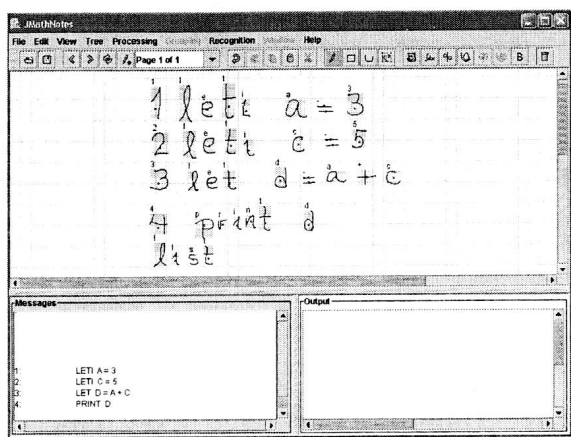 JMathNotes
File Edit View Tree Processing Recognition Help
Page 1 of 1 B
1 leti a = 3
2 leti c = 5
3 let d = a + c
4 print d
list
Messages Output
1: LETI A = 3
2: LETI C = 5
3: LET D = A + C
4: PRINT D